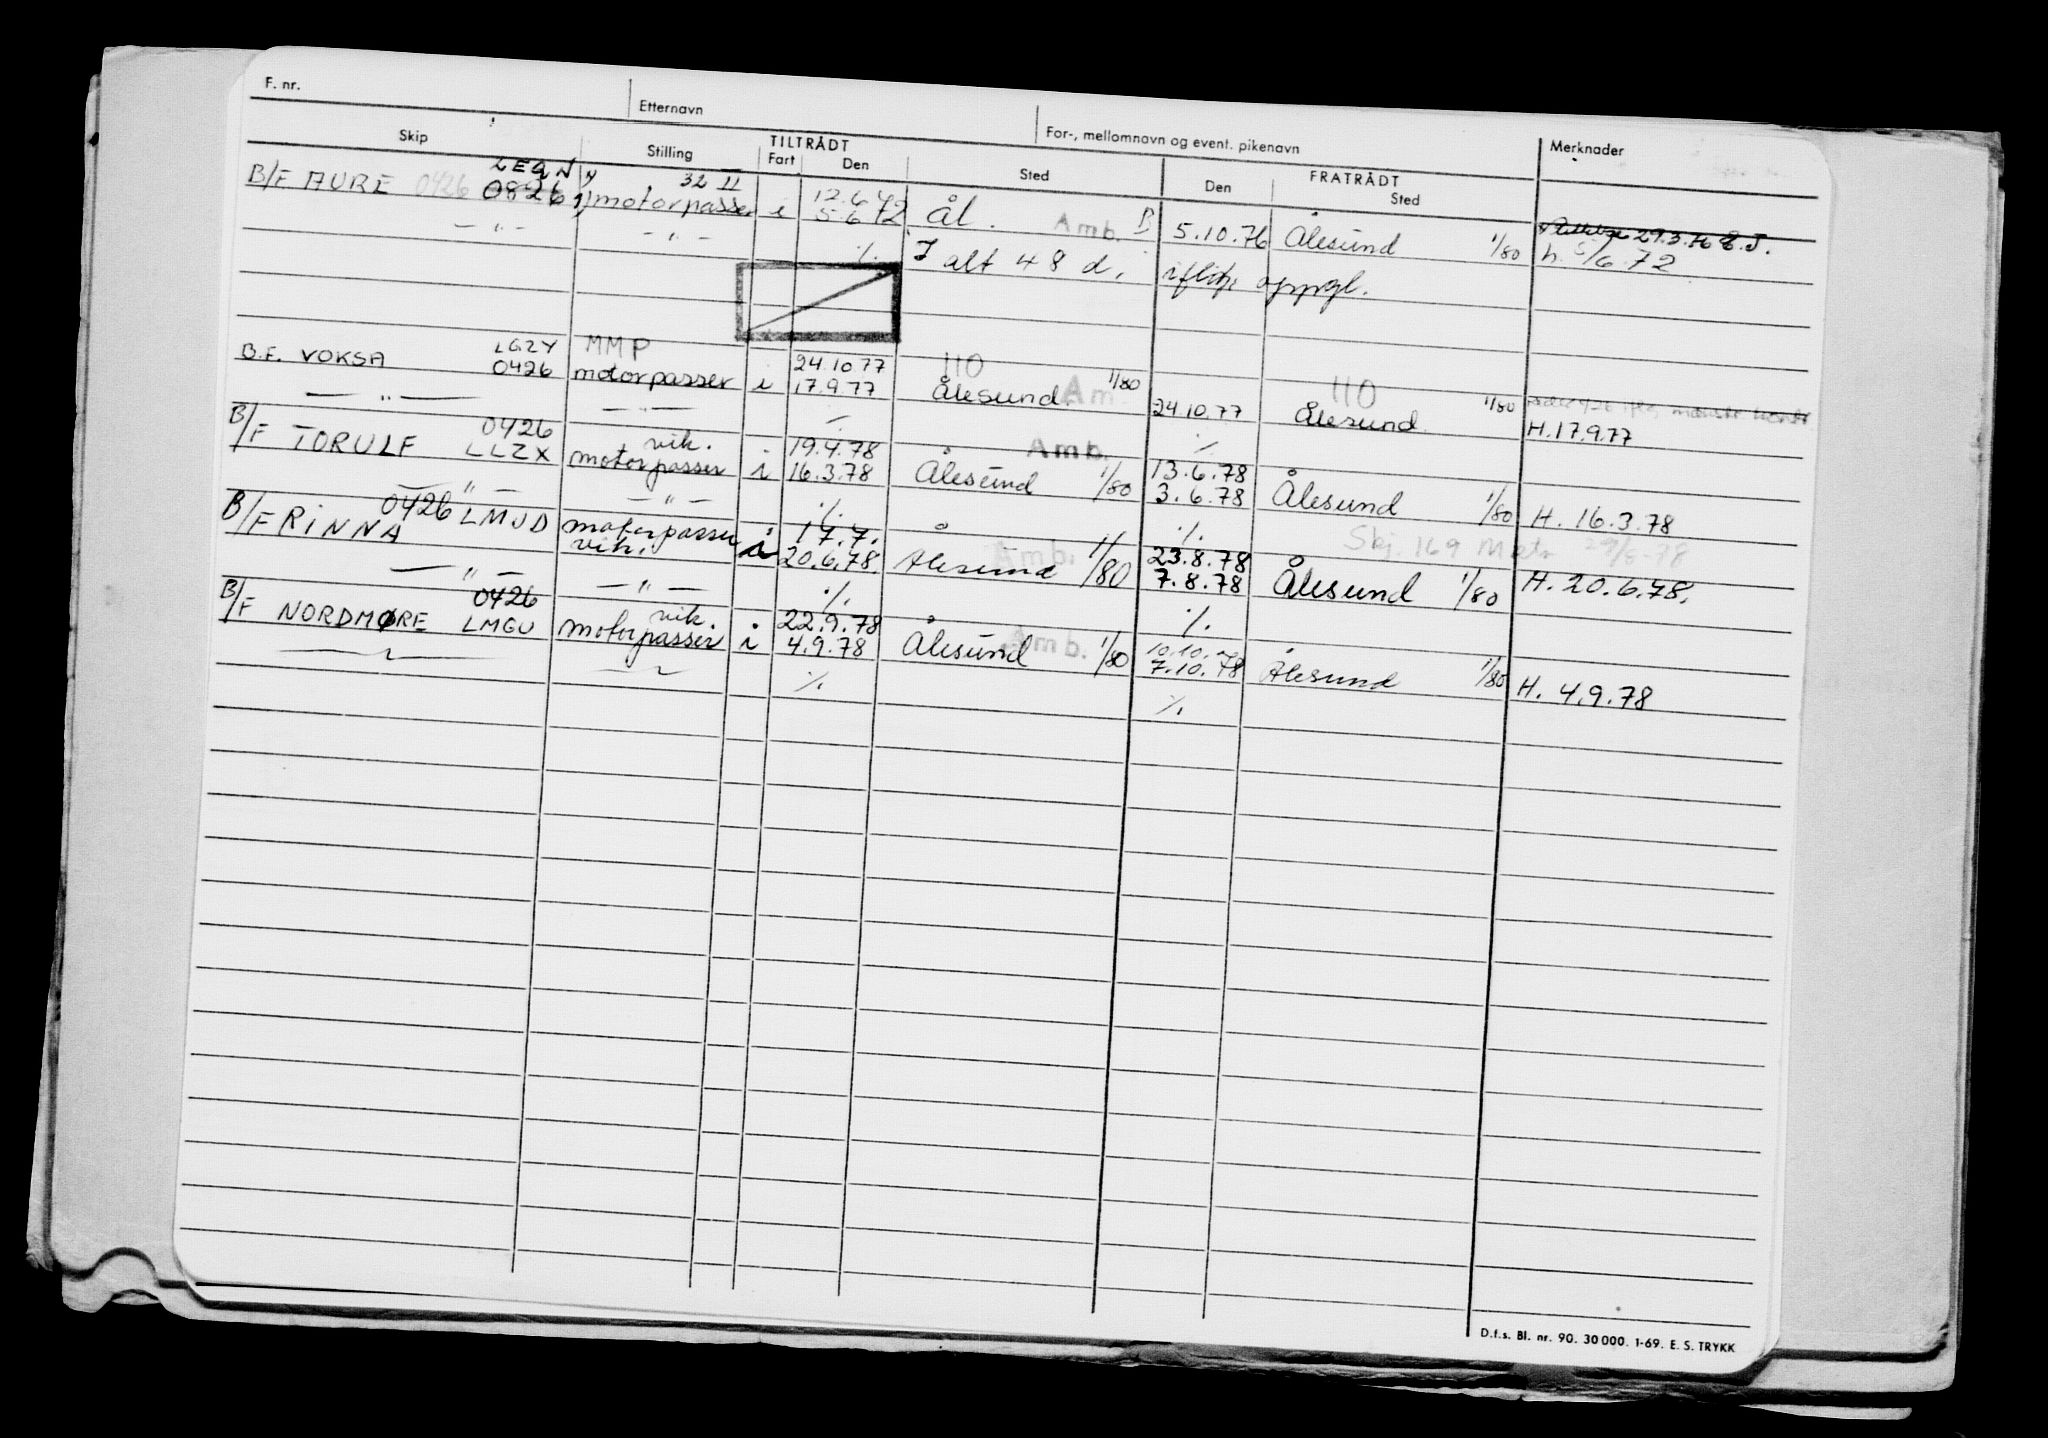 F. nr. Etternavn For-, mellomnavn og event. pikenavn Merknader
Skip Stilling TILTRÅDT Fart Den Sted FRATRÅDT Den Sted
LEQN 32 II 12.6.72
B/F AURE 0426 0826 1) motorpasser i 5.6.72 Ål. Amb. B 5.10.76 Ålesund 1/80 29.3.76
— " — — " — ./. I alt 48 d. iflg. oppgl. h. 5/6.72
LGZY MMP 24.10.77 110 110
B.F. VOKSA 0426 motorpasser i 17.9.77 Ålesund. 1/80 Am 24.10.77 Ålesund 1/80
— " — — " — ./. ./. H.17.9.77
0426 vik. 19.4.78 Amb. 13.6.78
B/F TORULF LLZX motorpasser i 16.3.78 Ålesund 1/80 3.6.78 Ålesund 1/80 H. 16.3.78
— " — — " — ./. ./. Sbj. 169 29/8-78
0426 LMUD motorpasser i 17.7. 23.8.78
B/F RINNA vik. i 20.6.78. Ålesund Amb. 1/80 7.8.78 Ålesund 1/80 H. 20.6.78.
— " — — " — ./. ./.
0426 vik. 22.9.78 10.10.
B/F NORDMØRE LMGU motorpasser i 4.9.78 Ålesund Amb. 1/80 7.10.78 Ålesund 1/80 H. 4.9.78
— " — — " — ./. ./.
D.f.s. Bl. nr. 90. 30 000. 1-69. E. S. TRYKK